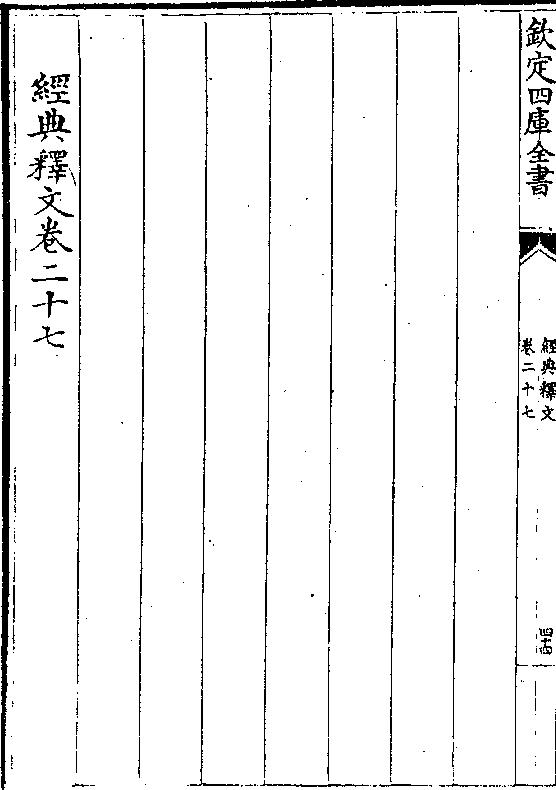 欽定四庫全書
經典釋文
卷二十七
四十四
經典釋文卷二十七